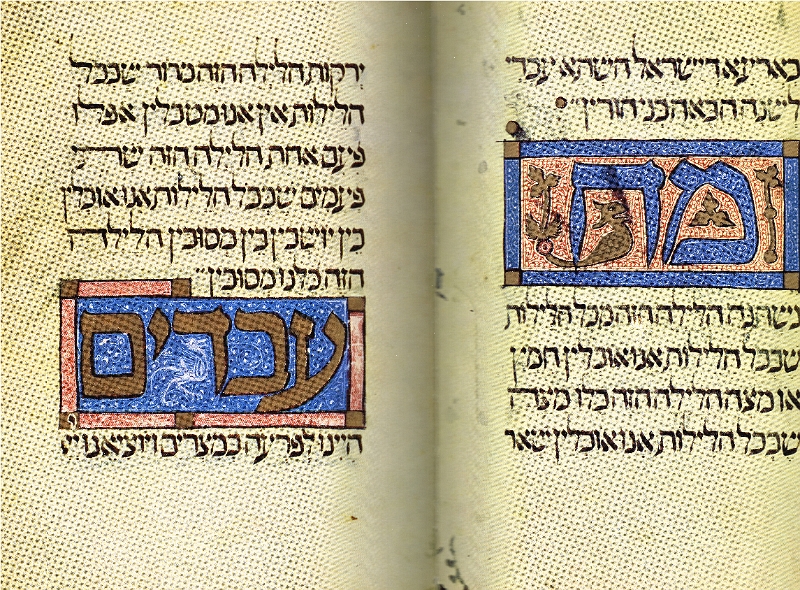 בארעא דישראל השתא עבדי
לשנה הבאה בני חורין
מה
נשתנה הלילה הזה מכל הלילות
שבכל הלילות אנו אוכלין חמץ
או מצה הלילה הזה כלו מצה
שבכל הלילות אנו אוכלין שאר
ירקות הלילה הזה מרור שבכל
הלילות אין אנו מטבלין אפילו
פעם אחת הלילה הזה שתי
פעמים שבכל הלילות אנו אוכלין
בין יושבין בין מסובין הלילה
הזה כלנו מסובין
עבדים
היינו לפרעה במצרים ויוציאנו יי